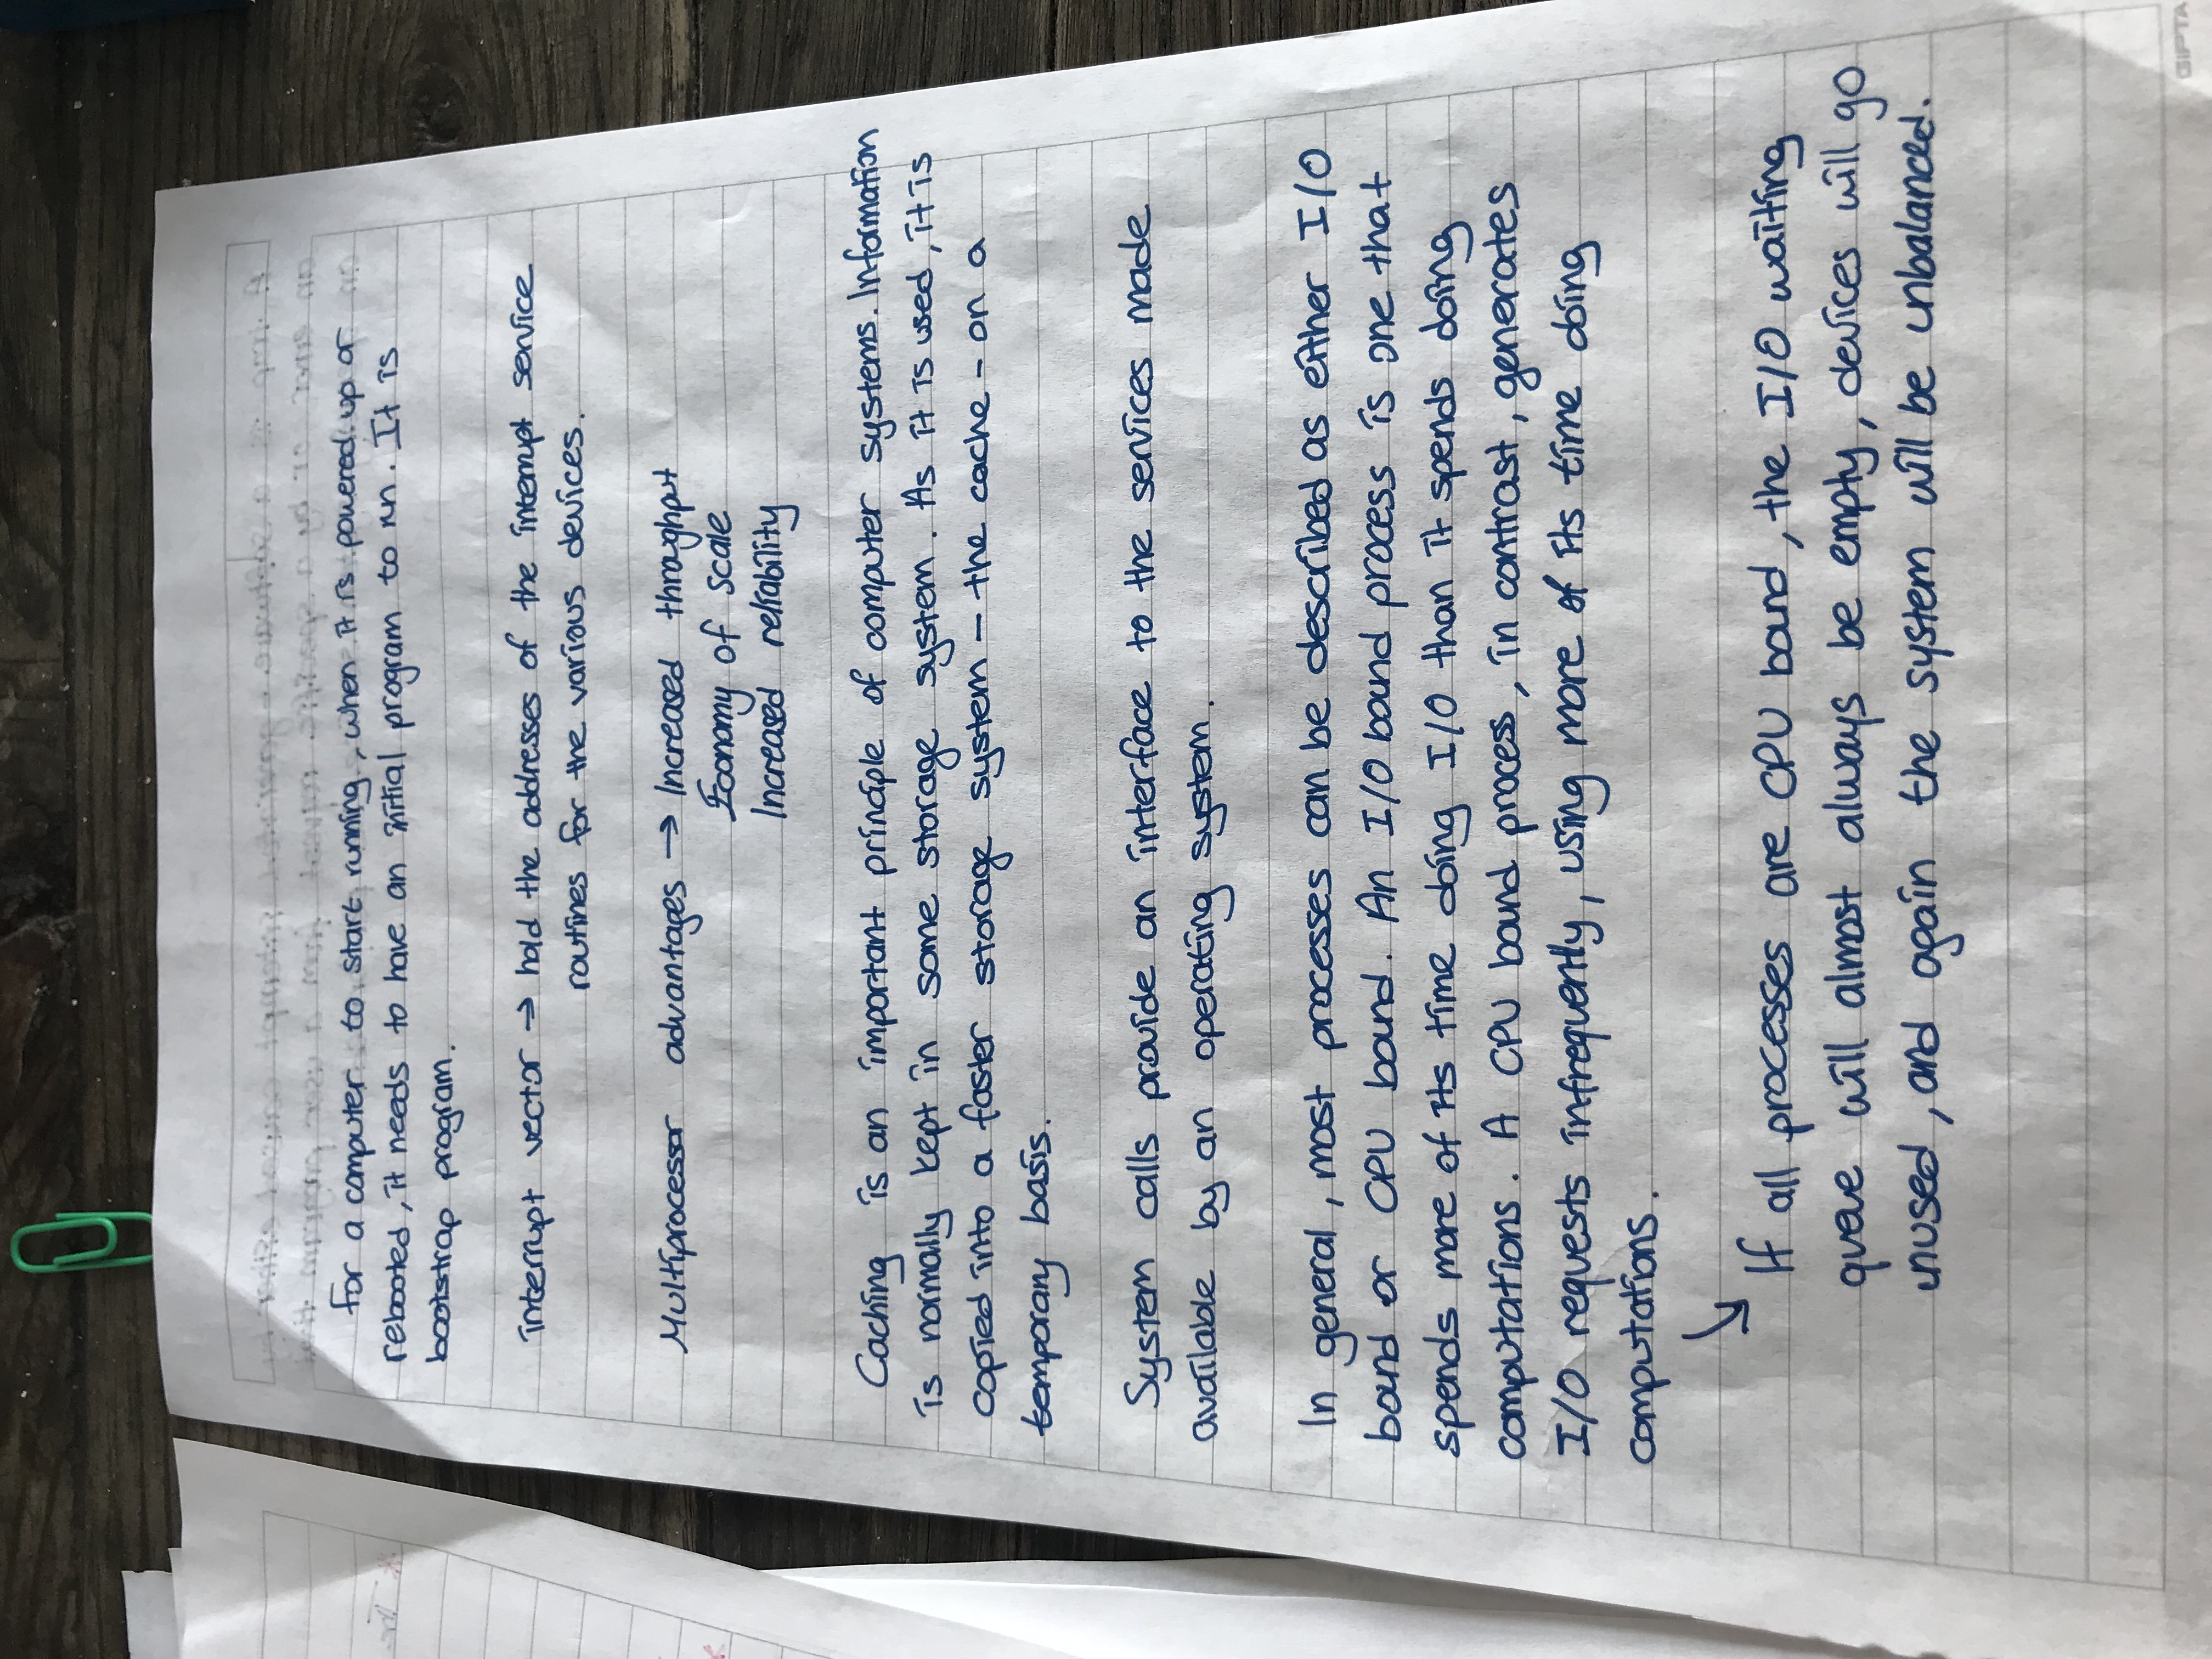 For a computer to start running, when it is powered up or
rebooted, it needs to have an initial program to run. It is
bootstrap program.
interrupt vector → hold the addresses of the interrupt service
routines for the various devices.
Multiprocessor advantages → Increased throughput
Economy of scale
Increased reliability
Caching is an important principle of computer systems. Information
is normally kept in some storage system. As it is used, it is
copied into a faster storage system - the cache - on a
temporary basis.
System calls provide an interface to the services made
available by an operating system.
In general, most processes can be described as either I/O
bound or CPU bound. An I/O bound process is one that
spends more of its time doing I/O than it spends doing
computations. A CPU bound process, in contrast, generates
I/O requests infrequently, using more of its time doing
computations.
↘ If all processes are CPU bound, the I/O waiting
queue will almost always be empty, devices will go
unused, and again the system will be unbalanced.
GIPTA